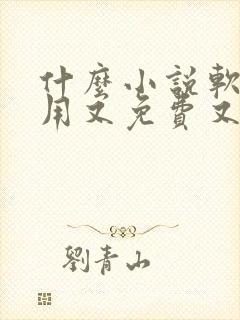 什麼小說軟
用又免費又
劉青山